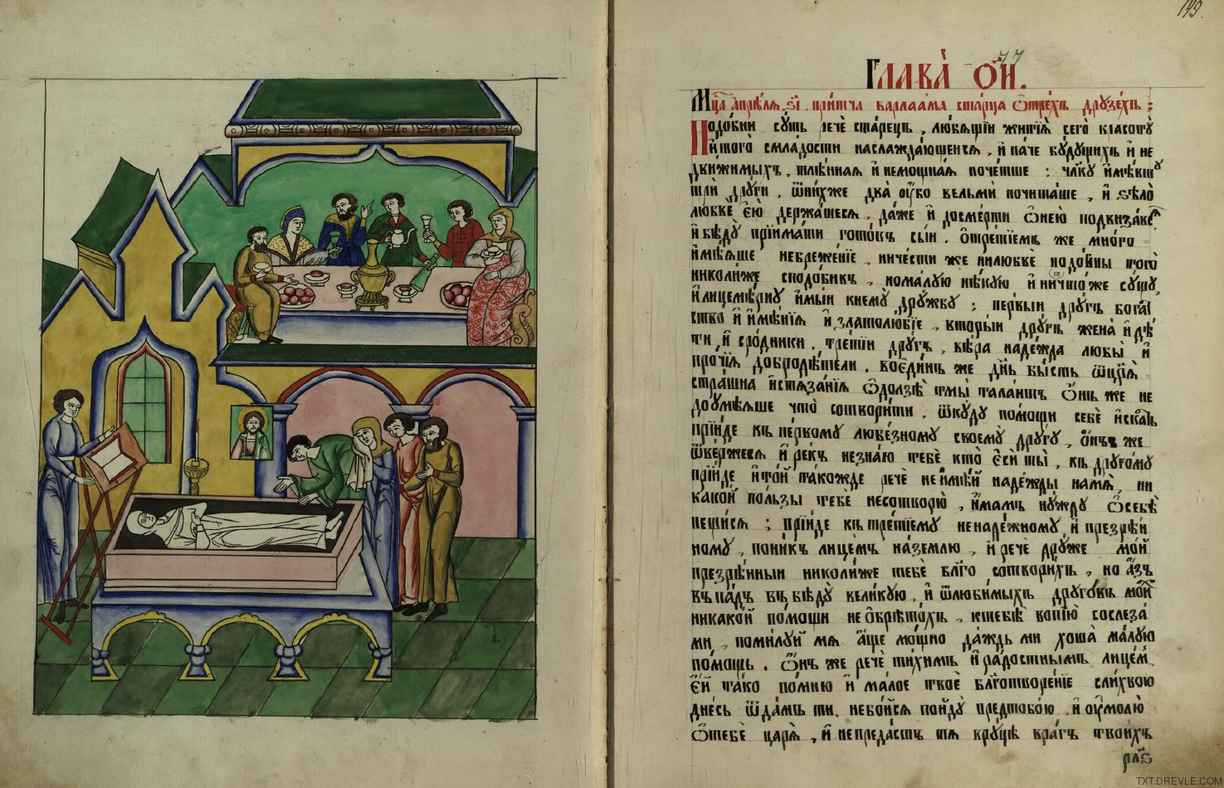 149
77
Глава о҃и.
Мц҃а апрѣля, з҃і притча варлаама старца ѿ трехъ друзехъ :
Подобни суть рече старецъ, любящїи житїя сего красоту
и того сладости наслаждающеися, и паче будущихъ и не
движимыхъ, тлѣнная и немощная почетше : чл҃ку имѣвшу
три други, ѿ нихже два оубо вельми почиташе, и ѕѣло
любве єю держашеся, даже и до смерти ѡ нею подвизаяс
и бѣду прїимати готовъ сыи. ѡ третїемъ же много
имѣяше небреженїе, ни чести же ни любве подобны того
николиже сподобивъ, но малую нѣкую и ничтоже сущу
и лицемѣрну имыи к нему дружбу ; первыи другъ богат
ство и имѣнїя и златолюбїе, вторыи другъ жена и дѣ
ти, и сродники. третїи другъ, вѣра надежда любы и
прочїя добродѣтели. во єдинъ же дн҃ь бысть ѿ ц҃ря
страшна истязанїя ѡ долзѣ тмы талантъ ѡнъ же не
доумѣяше что сотворити, ѿкуду помощи себе искать
прїиде къ первому любезному своему другу, онъ же
ѿвержеся и рекъ не знаю тебе кто єси ты, къ другому
прїиде и той такожде рече не имѣй надежды на мя, ни
какой пользы тебе не сотворю, имамъ нужду ѡ себѣ
пещися ; прїиде къ третїему ненадежному и презрѣн
ному, поникъ лицемъ на землю, и рече друже мой
презрѣнныи николиже тебе бл҃го сотворихъ, но азъ
въпадъ въ бѣду великую, и ѿ любимыхъ друговъ мой
никакой помощи не обрѣтохъ, к тебѣ вопїю со слеза
ми, помилуй мя аще мощно даждь ми хотя малую
помощь. ѡнъ же рече тихимъ и радостнымъ лицем
єй тако помню и малое твое бл҃готворенїе слихвою
днесь ѿдамъ ти. небойся пойду предтобою, и оумолю
ѡ тебе царя, и не предастъ тя вруцѣ врагъ твоихъ
TXT.DREVLE.COM